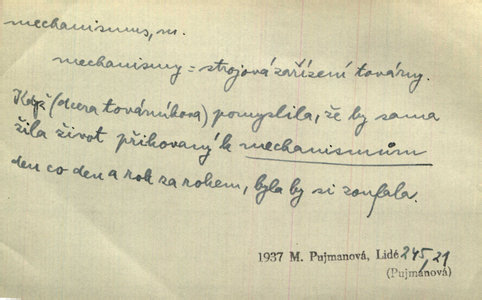 mechanismus, m.
mechanismy = strojová zařízení továrny.
Když (dcera továrníkova) pomyslila, že by sama
žila život přikovaný k mechanismům
den co den a rok za rokem, byla by si zoufala.
1937 M. Pujmanová, Lidé 245,21
(Pujmanová)